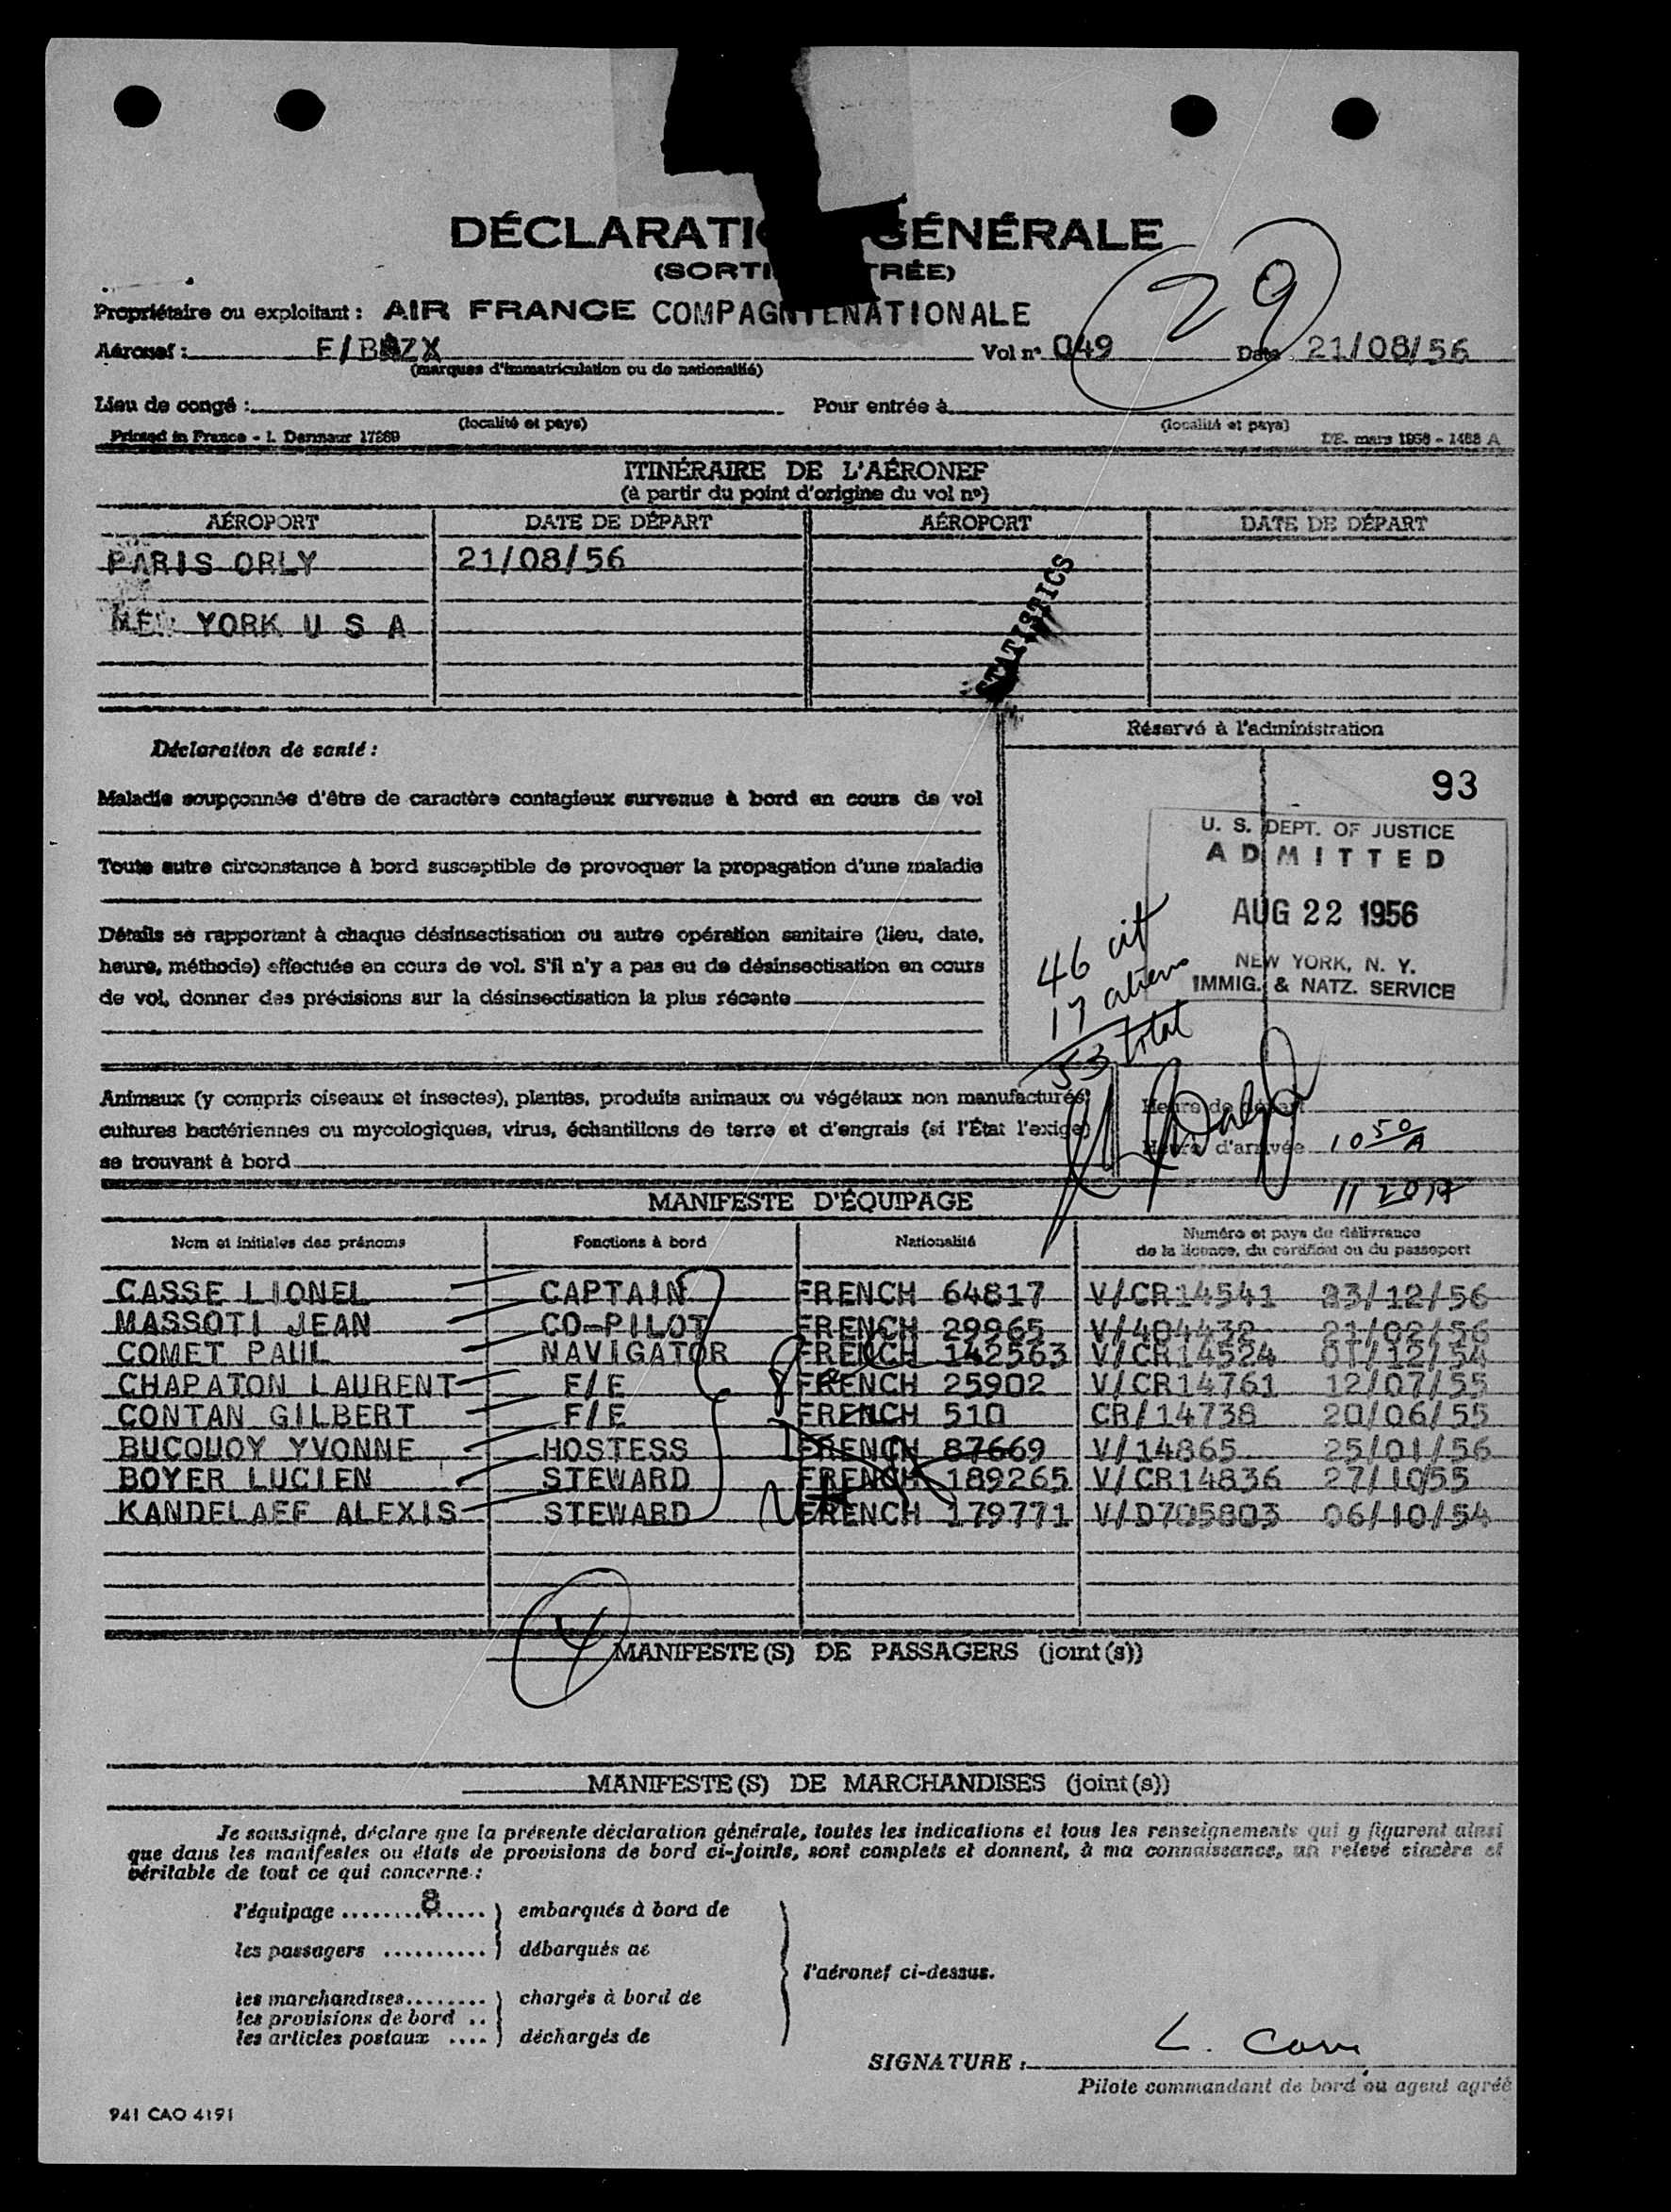 DÉCLARATI GÉNÉRALE
(SORTI TRÉE)
29
Propriétaire ou exploitant : AIR FRANCE COMPAGNIE NATIONALE
Aéronef : F/BAZX Vol nº 049 Date 21/08/56
(marques d'immatriculation ou de nationalité)
Lieu de congé : Pour entrée à
(localité et pays) (localité et pays)
Printed in France - I. Dermaur 17269 1488 A
ITINÉRAIRE DE L'AÉRONEF
(à partir du point d'origine du vol nº)
AÉROPORT DATE DE DÉPART AÉROPORT DATE DE DÉPART
PARIS ORLY 21/08/56
NEW YORK U S A
STATISTICS
Réservé à l'administration
Déclaration de santé :
93
Maladie soupçonnée d'être de caractère contagieux survenue à bord en cours de vol
U. S. DEPT. OF JUSTICE
ADMITTED
Toute autre circonstance à bord susceptible de provoquer la propagation d'une maladie
AUG 22 1956
NEW YORK, N. Y.
IMMIG. & NATZ. SERVICE
Détails se rapportant à chaque désinsectisation ou autre opération sanitaire (lieu, date,
heure, méthode) effectuée en cours de vol. S'il n'y a pas eu de désinsectisation en cours
de vol, donner des précisions sur la désinsectisation la plus récente
46 cit
17 aliens
53 total
Animaux (y compris oiseaux et insectes), plantes, produits animaux ou végétaux non manufacturés,
cultures bactériennes ou mycologiques, virus, échantillons de terre et d'engrais (si l'État l'exige)
se trouvant à bord
Heure de départ
Heure d'arrivée 10 50/A
11 20 A
MANIFESTE D'ÉQUIPAGE
Nom et initiales des prénoms Fonctions à bord Nationalité Numéro et pays de délivrance
de la licence, du certificat ou du passeport
CASSE LIONEL CAPTAIN FRENCH 64817 V/CR14541 23/12/56
MASSOTI JEAN CO-PILOT FRENCH 29965 V/404432 21/02/56
COMET PAUL NAVIGATOR FRENCH 142563 V/CR14524 01/12/54
CHAPATON LAURENT F/E FRENCH 25902 V/CR14761 12/07/55
CONTAN GILBERT F/E FRENCH 510 CR/14738 20/06/55
BUCQUOY YVONNE HOSTESS FRENCH 87669 V/14865 25/01/56
BOYER LUCIEN STEWARD FRENCH 189265 V/CR14836 27/10/55
KANDELAFF ALEXIS STEWARD FRENCH 179771 V/D705803 06/10/54
MANIFESTE(S) DE PASSAGERS (joint(s))
MANIFESTE(S) DE MARCHANDISES (joint(s))
Je soussigné, déclare que la présente déclaration générale, toutes les indications et tous les renseignements qui y figurent ainsi
que dans les manifestes ou états de provisions de bord ci-joints, sont complets et donnent, à ma connaissance, un relevé sincère et
véritable de tout ce qui concerne :
l'équipage ........8...... } embarqués à bord de
les passagers ........... } débarqués de
l'aéronef ci-dessus.
les marchandises........ } chargés à bord de
les provisions de bord ..
les articles postaux .... } déchargés de
SIGNATURE :
Pilote commandant de bord ou agent agréé
941 CAO 4191